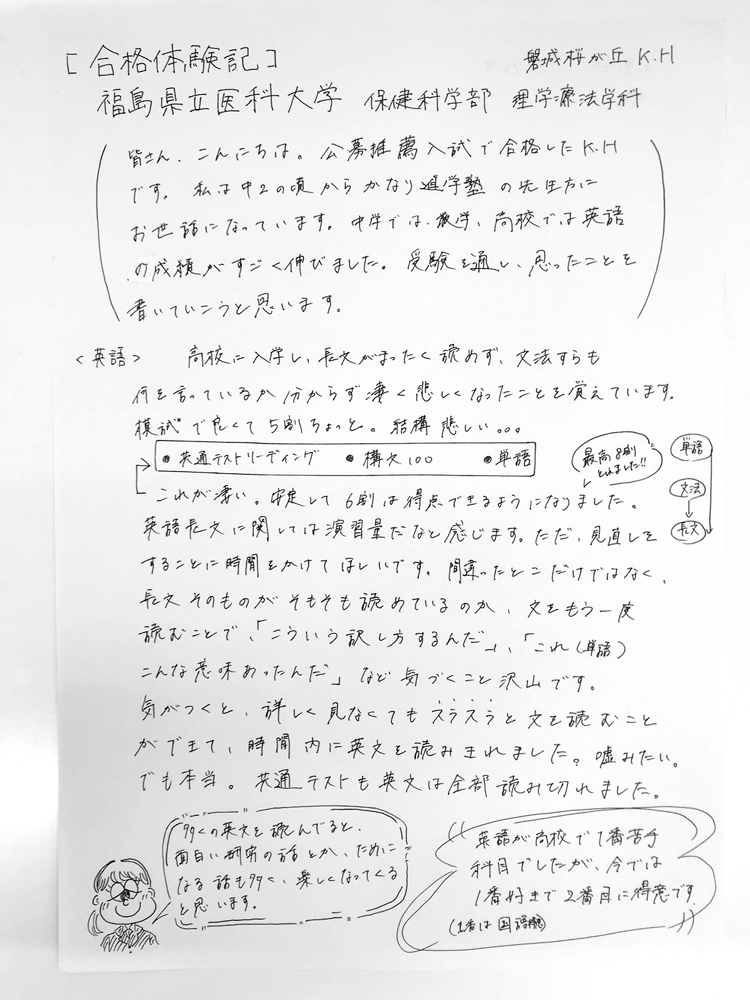 [合格体験記]
磐城桜が丘 K.H
福島県立医科大学 保健科学部 理学療法学科
皆さん、こんにちは。公募推薦入試で合格したK.H
です。私は中2の頃からかなり進学塾の先生方に
お世話になっています。中学では、数学、高校では英語
の成績がすごく伸びました。受験を通し、思ったことを
書いていこうと思います。
<英語> 高校に入学し、長文がまったく読めず、文法すらも
何を言っているか分からず凄く悲しくなったことを覚えています。
模試で良くて5割ちょっと。結構悲しい。。。
•共通テストリーディング •構文100 •単語
最高8割
とれました!!
単語
文法
長文
これが凄い。安定して6割は得点できるようになりました。
英語長文に関しては演習量だなと感じます。ただ、見直しを
することに時間をかけてほしいです。間違ったとこだけではなく、
長文そのものがそもそも読めているのか、文をもう一度
読むことで、「こういう訳し方するんだ」、「これ(単語)
こんな意味あったんだ」など気づくこと沢山です。
気がつくと、詳しく見なくてもスラスラと文を読むこと
ができて、時間内に英文を読みきれました。嘘みたい。
でも本当。共通テストも英文は全部読み切れました。
多くの英文を読んでると、
面白い研究の話とか、ために
なる話も多く、楽しくなってくる
と思います。
英語が高校で1番苦手
科目でしたが、今では
1番好きで2番目に得意です
(1番は国語)